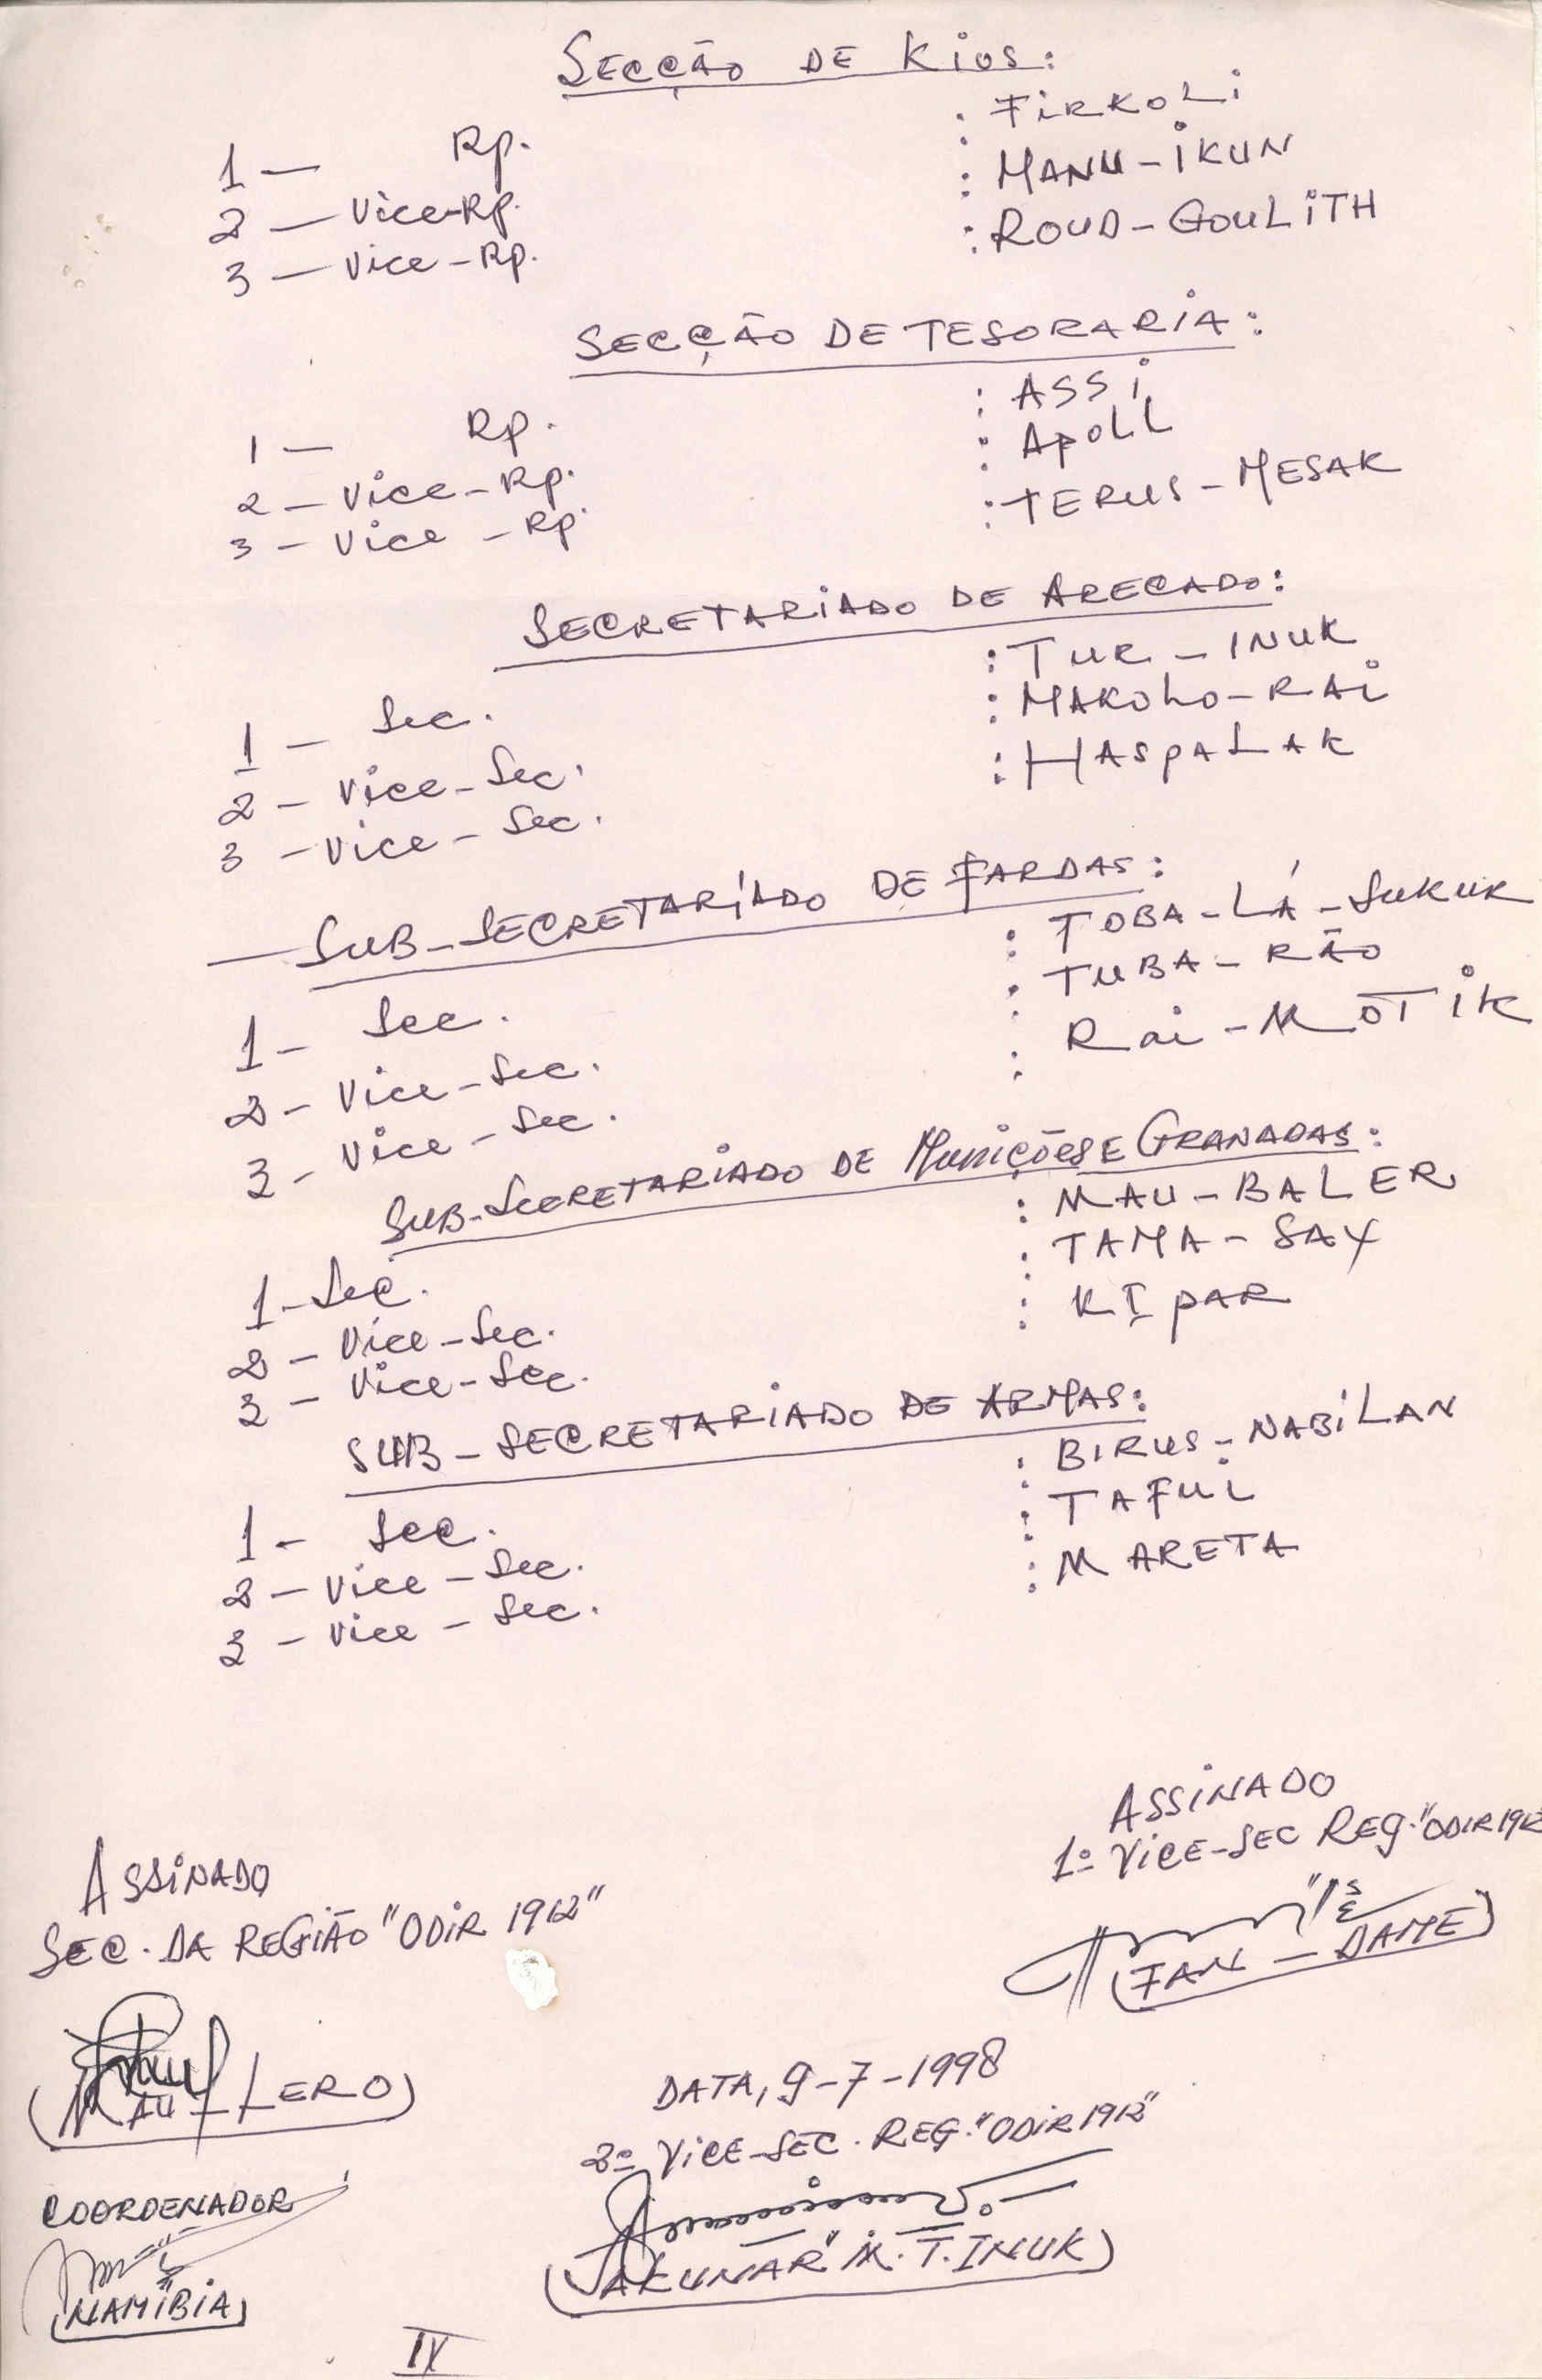 SECÇÃO DE KIOS:
1 — Rp. : FIRKOLI
2 — Vice-Rp. : MANU-IKUN
3 — Vice-Rp. : ROUD-GOULITH
SECÇÃO DE TESORARIA:
1 — Rp. : ASSI
2 — Vice-Rp. : APOLL
3 — Vice-Rp. : TERUS-MESAK
SECRETARIADO DE ARECADO:
1 — Sec. : TUR-INUK
2 — Vice-Sec. : MAKOLO-RAI
3 — Vice-Sec. : HASPALAK
— SUB-SECRETARIADO DE FARDAS:
1 — Sec. : TOBA-LÁ-SUKUR
2 — Vice-Sec. : TUBA-RÃO
3 — Vice-Sec. : Rai-MOTIK
SUB-SECRETARIADO DE Munições E GRANADAS:
1 — Sec. : MAU-BALER
2 — Vice-Sec. : TAMA-SAX
3 — Vice-Sec. : KIPAR
SUB-SECRETARIADO DE ARMAS:
1 — Sec. : BIRUS-NABILAN
2 — Vice-Sec. : TAFUI
3 — Vice-Sec. : MARETA
ASSINADO
1º VICE-SEC REG. "ODIR 1912
(FAN-DAME)
ASSINADO
SEC. DA REGIÃO "ODIR 1912"
(MAU-LERO)
DATA, 9-7-1998
2º VICE-SEC. REG. "ODIR 1912"
(JAKUNAR" M. T. INUK)
COORDENADOR
(NAMIBIA)
IV